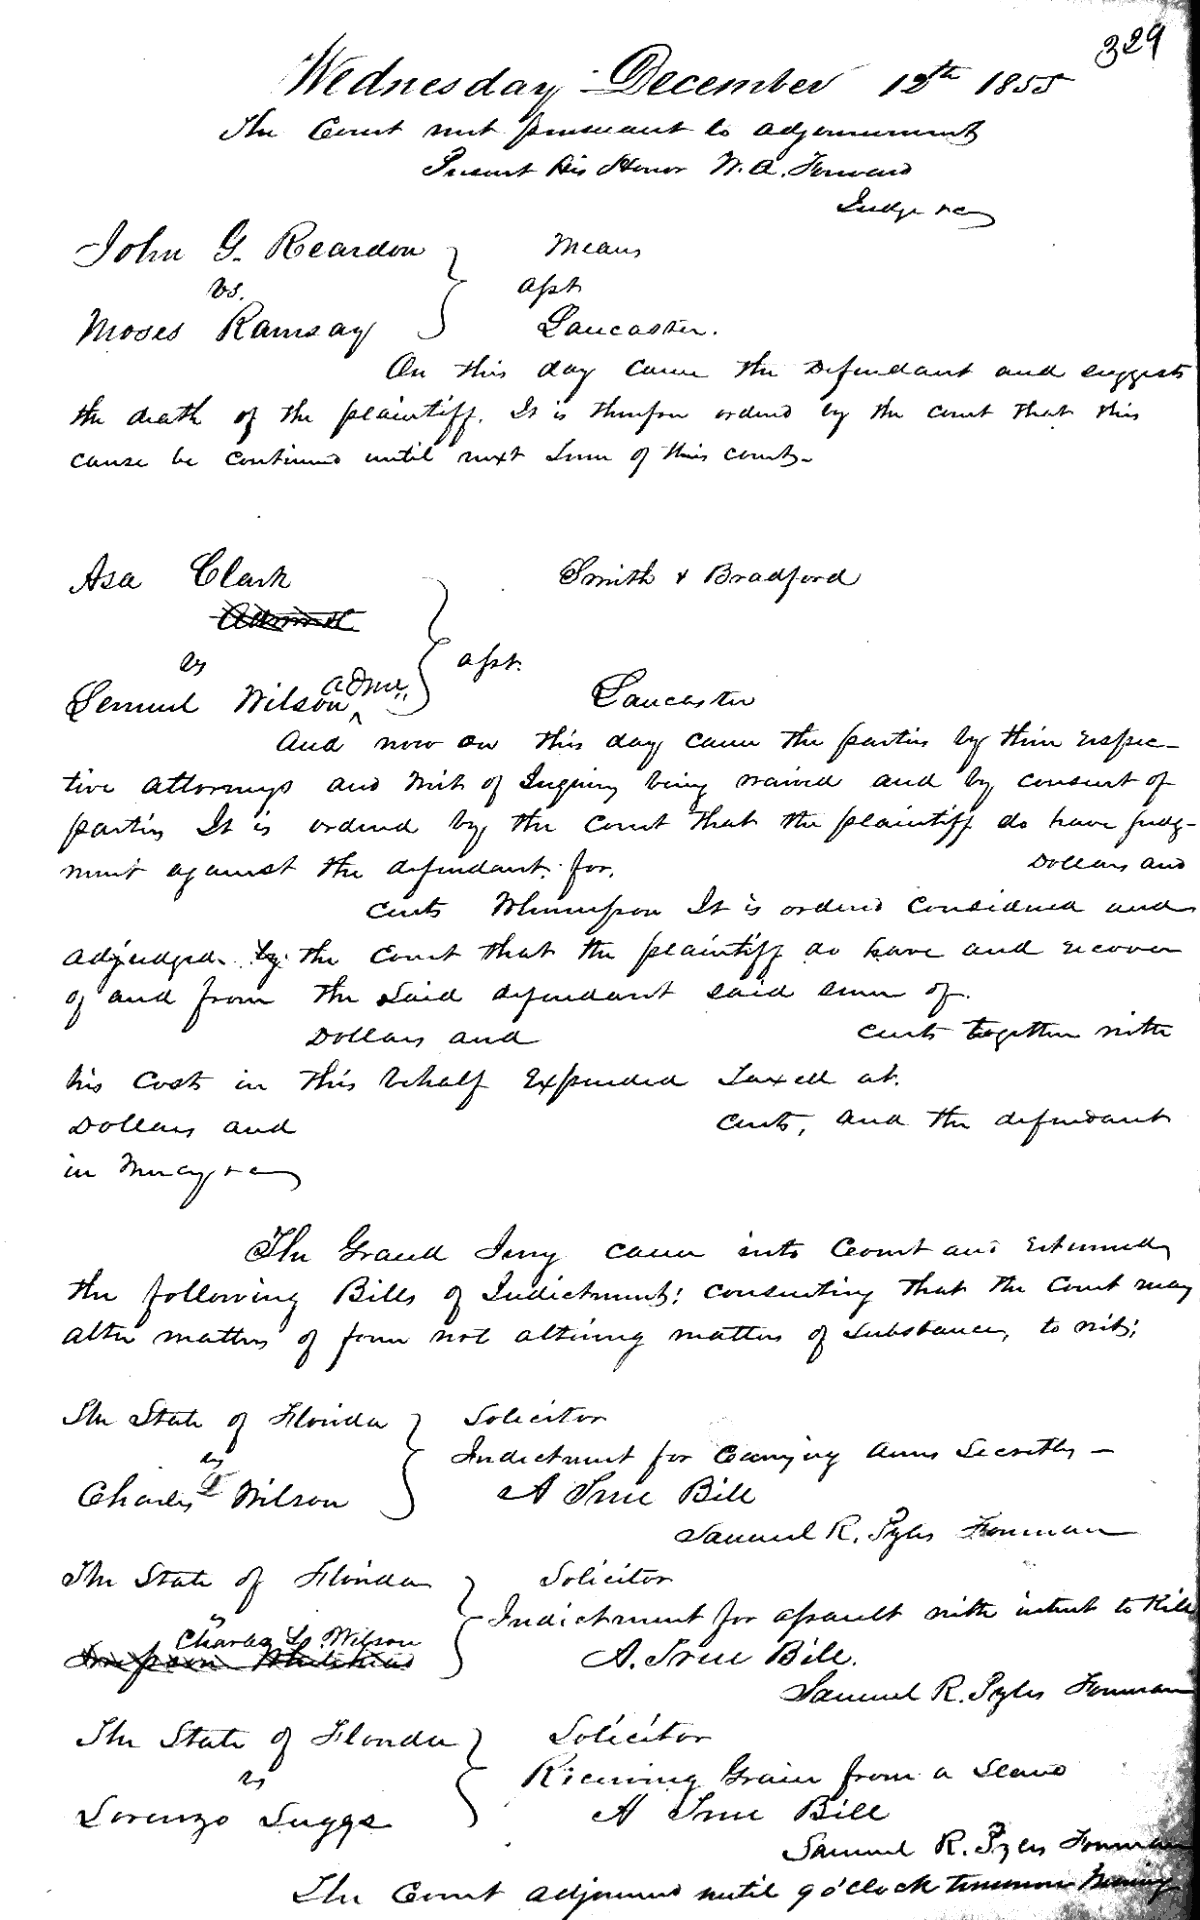 329
Wednesday December 12th 1855
The Court met pursuant to adjournment
Present his Honor W. A. Forward
Judge &c
John G. Reardon Means
vs. asst
Moses Ramsay Lancaster.
On this day came the Defendant and suggests
the death of the plaintiff. It is therefore ordered by the court that this
cause be continued until next Term of this court.
Asa Clark Smith & Bradford
vs asst.
Lemuel Wilson admr Lancaster
And now on this day came the parties by their respec-
tive attorneys and writ of Inquiry being waived and by consent of
parties It is ordered by the Court that the plaintiff do have judg-
ment against the defendant for. Dollars and
cents Whereupon It is ordered considered and
adjudged by the Court that the plaintiff do have and recover
of and from the said defendant said sum of.
Dollars and cents together with
his costs in this behalf expended Taxed at.
Dollars and cents, and the defendant
in Mercy &c
The Grand Jury came into Court and returned
the following Bills of Indictment: consenting that the Court may
alter matters of form not altering matters of substance, to wit:
The State of Florida Solicitor
vs Indictment for Carrying Arms Secretly -
Charles L Wilson A True Bill
Samuel R. Pyles Foreman
The State of Florida Solicitor
vs Indictment for assault with intent to Kill
Charles L. Wilson A. True Bill.
Samuel R. Pyles Foreman
The State of Florida Solicitor
vs Receiving Grain from a Slave
Lorenzo Suggs A True Bill
Samuel R. Pyles Foreman
The Court adjourned until 9 o'clock tomorrow Morning